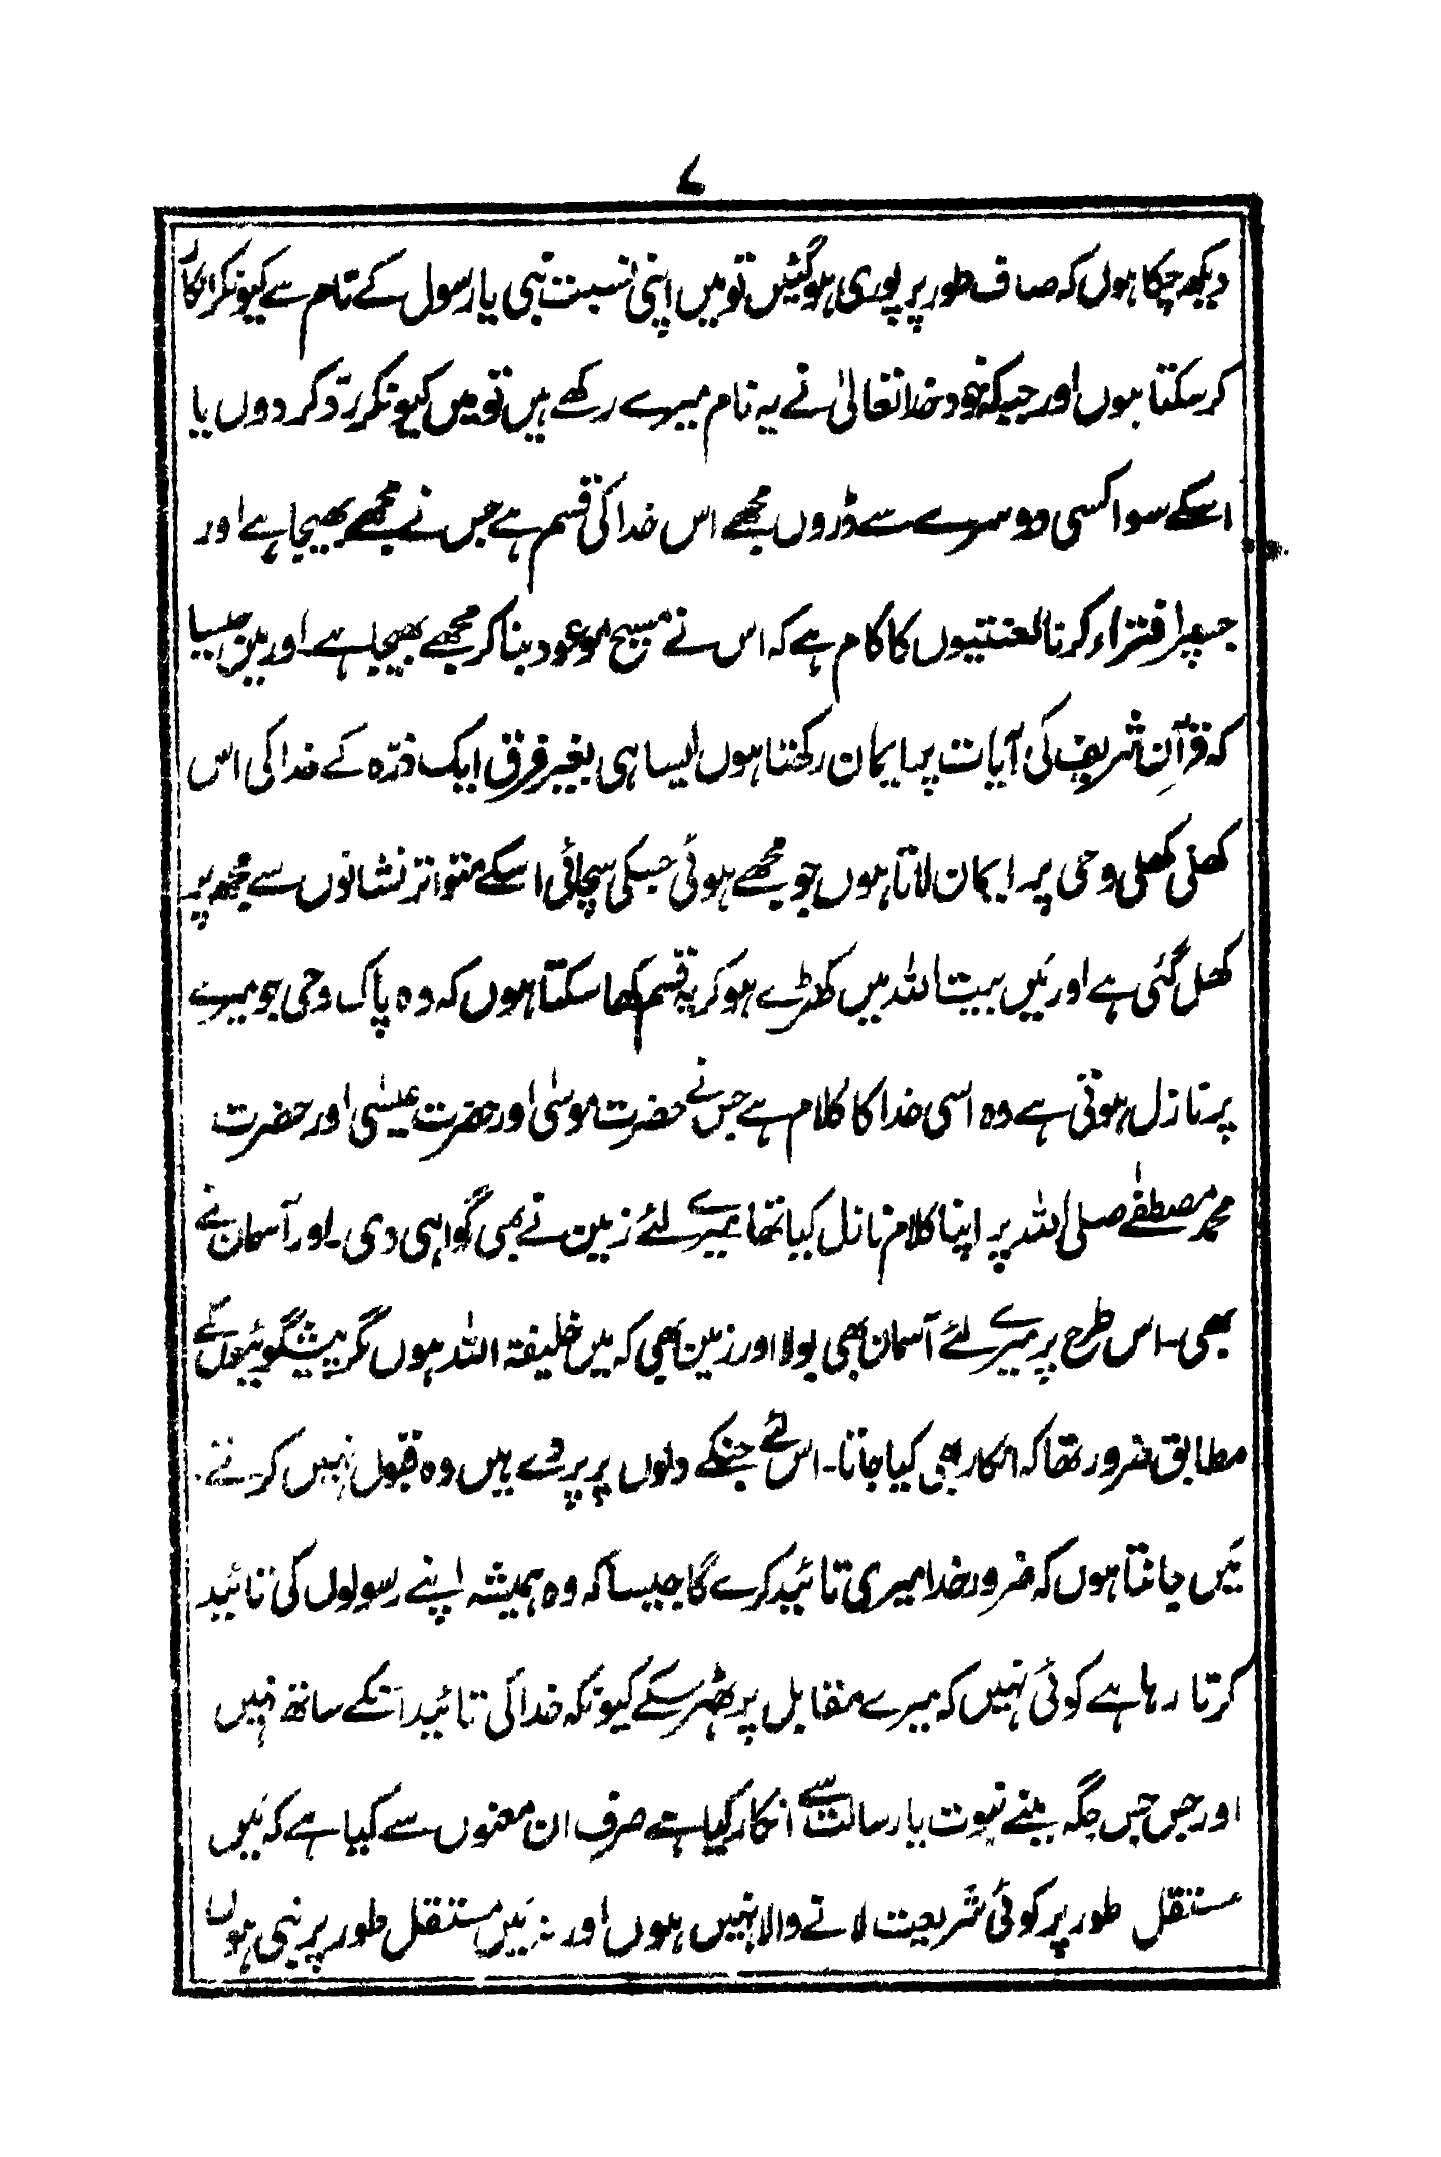 ۷
دیکھ چکا ہوں کہ صاف طور پر پوری ہوگئیں تو میں اپنی نسبت نبی یا رسول کے نام سے کیونکر انکار
کر سکتا ہوں اور جبکہ خود خدا تعالیٰ نے یہ نام میرے رکھے ہیں تو میں کیونکر ردّ کر دوں یا
اسکے سوا کسی دوسرے سے ڈروں مجھے اس خدا کی قسم ہے جس نے مجھے بھیجا ہے اور
جسپر افتراء کرنا لعنتیوں کا کام ہے کہ اس نے مسیح موعود بنا کر مجھے بھیجا ہے۔ اور میں جیسا
کہ قرآن شریف کی آیات پر ایمان رکھتا ہوں ایسا ہی بغیر فرق ایک ذرّہ کے خدا کی اس
کھلی کھلی وحی پر ایمان لاتا ہوں جو مجھے ہوئی جسکی سچائی اسکے متواتر نشانوں سے مجھ پر
کھل گئی ہے اور مَیں بیت اللہ میں کھڑے ہو کر یہ قسم کھا سکتا ہوں کہ وہ پاک وحی جو میرے
پر نازل ہوتی ہے وہ اسی خدا کا کلام ہے جس نے حضرت موسیٰ اور حضرت عیسٰی اور حضرت
محمد مصطفٰے صلی اللہ پر اپنا کلام نازل کیا تھا میرے لئے زمین نے بھی گواہی دی۔ اور آسمان نے
بھی۔ اس طرح پر میرے لئے آسمان بھی بولا اور زمین بھی کہ میں خلیفۃ اللہ ہوں مگر پیشگوئیوں کے
مطابق ضرور تھا کہ انکار بھی کیا جاتا۔ اس لئے جنکے دلوں پر پردے ہیں وہ قبول نہیں کرتے۔
مَیں جانتا ہوں کہ ضرور خدا میری تائید کرے گا جیسا کہ وہ ہمیشہ اپنے رسولوں کی تائید
کرتا رہا ہے کوئی نہیں کہ میرے مقابل پر ٹھہر سکے کیونکہ خدا کی تائید اُنکے ساتھ نہیں
اور جس جس جگہ مینے نبوت یا رسالت سے انکار کیا ہے صرف ان معنوں سے کیا ہے کہ مَیں
مستقل طور پر کوئی شریعت لانے والا نہیں ہوں اور نہ مَیں مستقل طور پر نبی ہوں